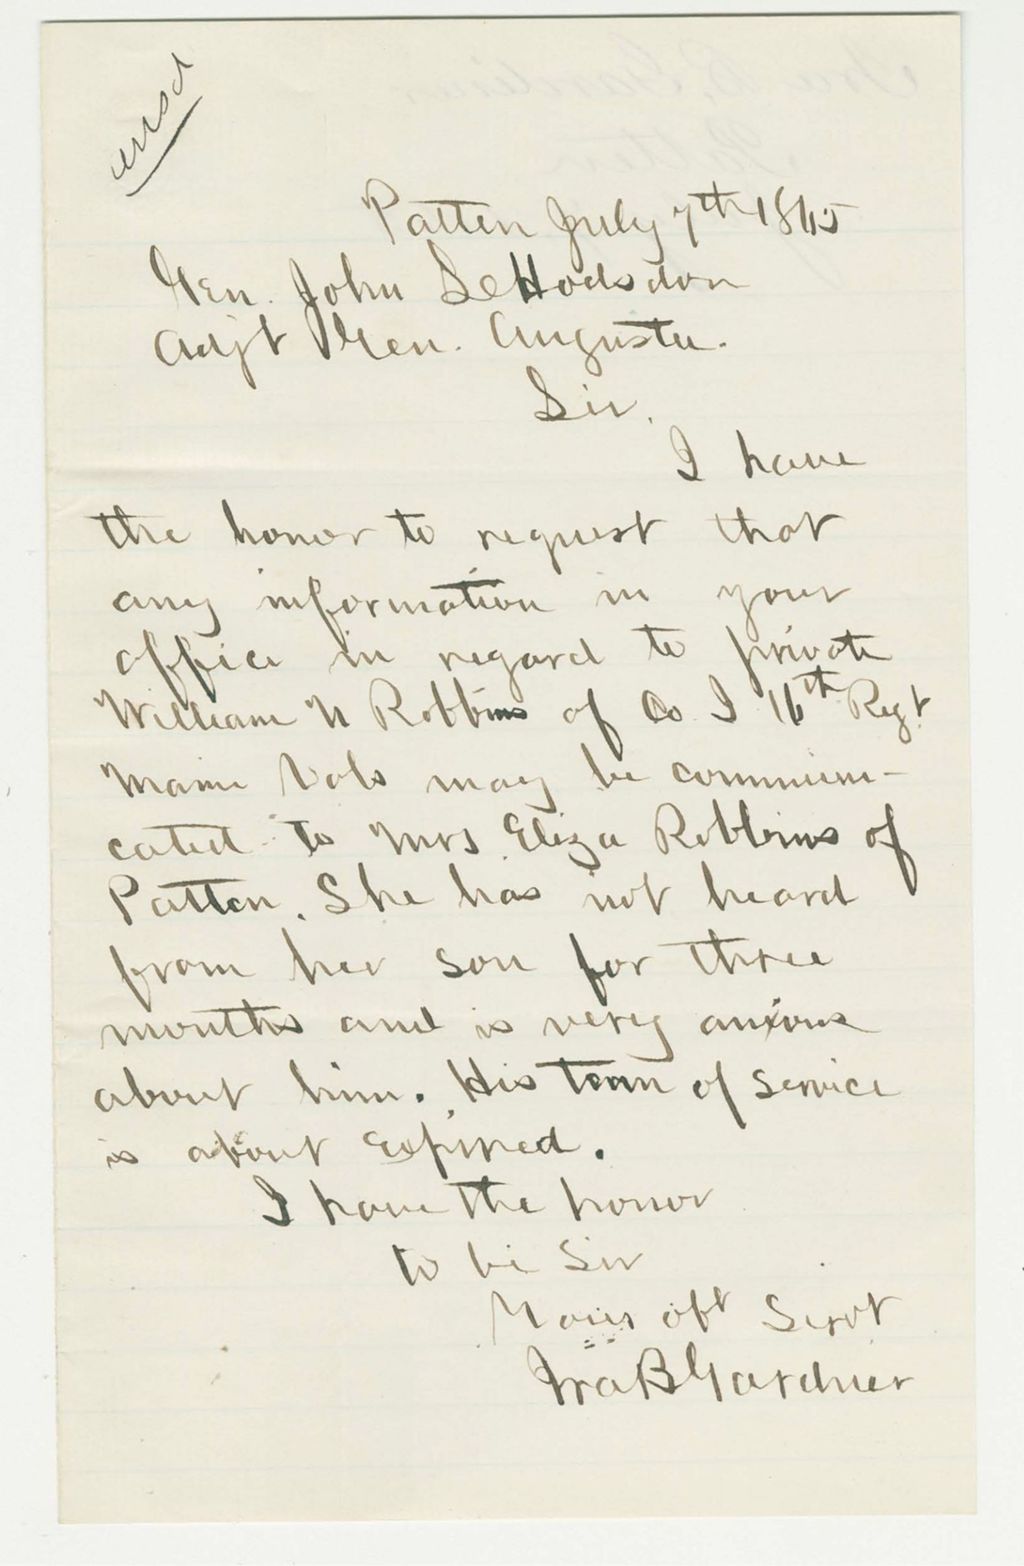 ansd
Patten July 7th 1865
Gen. John L Hodsdon
Adjt Gen. Augusta.
Sir.
I have
the honor to request that
any information in your
office in regard to private
William N Robbins of Co I 16th Regt
Maine Vols may be communi-
cated to Mrs Eliza Robbins of
Patten. She has not heard
from her son for three
months and is very anxious
about him. His term of service
is about expired.
I have the honor
to be Sir
Your obt Servt
Ira B Gardner